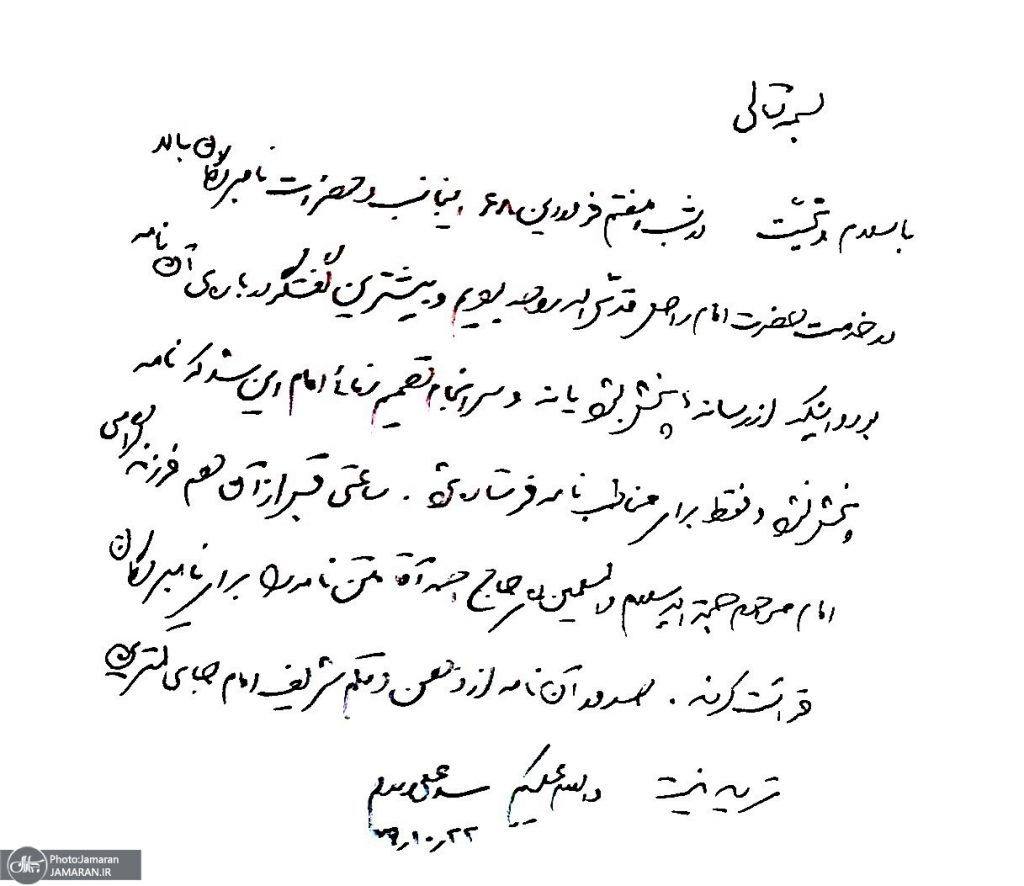 بسمه تعالی
با سلام و تحیّت در شب هفتم فروردین ۶۸ اینجانب و حضرات نامبردگان بالا
در خدمت حضرت امام راحل قدس‌الله روحه بودیم و بیشترین گفتگو درباره‌ی آن نامه
بود و اینکه از رسانه‌ها پخش بشود یا نه و سرانجام تصمیم امام این شد که نامه
پخش نشود و فقط برای مخاطب نامه فرستاده شود. ساعتی قبل از آن هم فرزند گرامی
امام مرحوم حجةالاسلام والمسلمین حاج احمد آقا متن نامه را برای نامبردگان
قرائت کردند. صدور آن نامه از ذهن و قلم شریف امام جای کمترین
تردید نیست والسلام علیکم سید علی
۷۹٫۱۰٫۲۲
PhotoJamaran
JAMARAN.IR